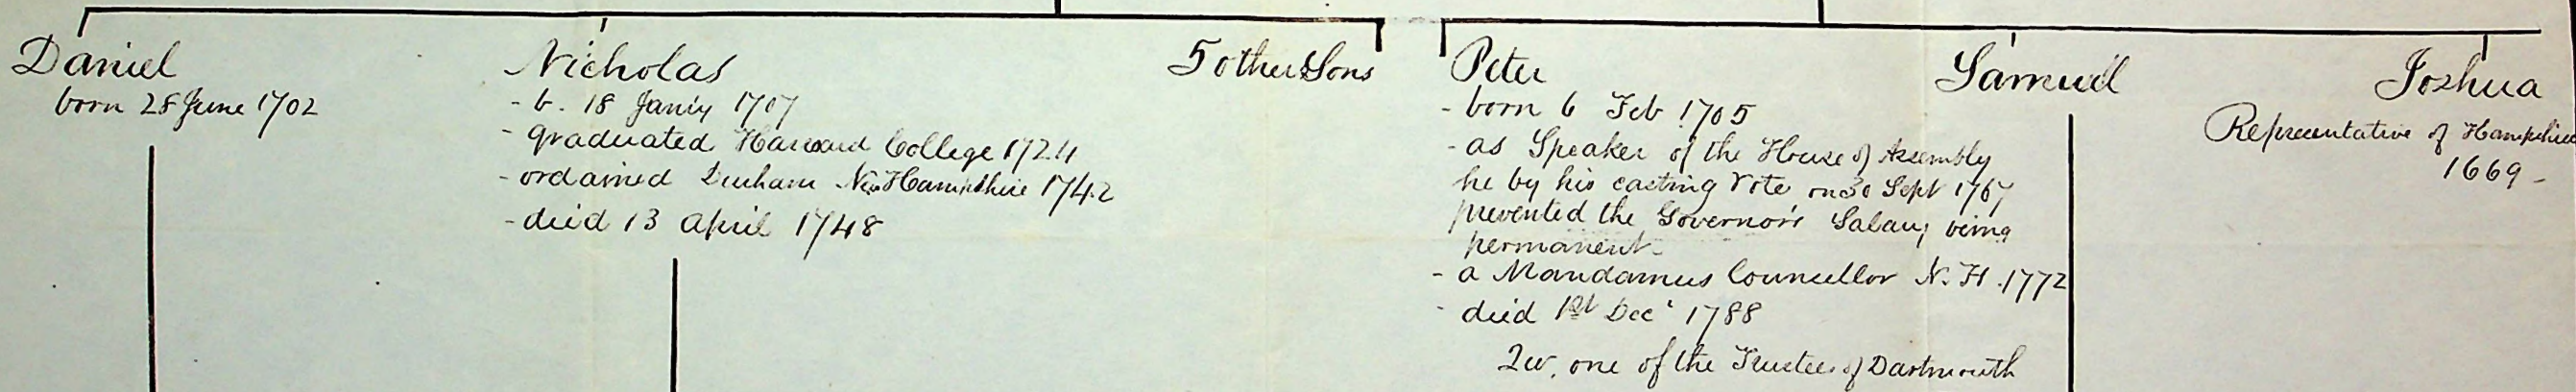 Daniel
born 28 June 1702
Nicholas
- b. 18 Jany 1707
- graduated Harvard College 1724
- ordained Durham New Hampshire 1742
- died 13 April 1748
5 other Sons
Peter
- born 6 Feb 1705
- as Speaker of the House of Assembly
he by his casting Vote on 30 Sept 1767
prevented the Governor's Salary being
permanent -
- a Mandamus Councellor N. H. 1772
- died 1st Dec 1788
one of the Trustees of Dartmouth
Samuel
Joshua
Representative of Hampshire
1669 -